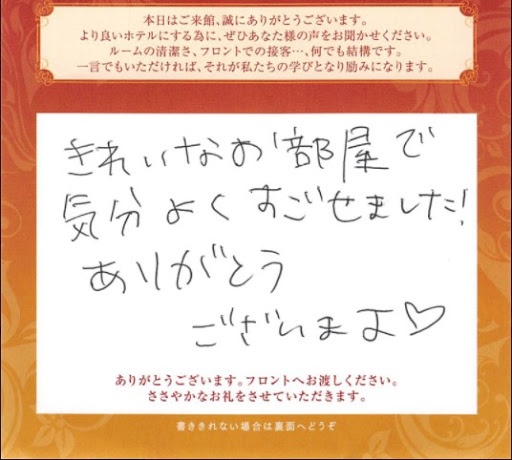 本日はご来館、誠にありがとうございます。
より良いホテルにする為に、ぜひあなた様の声をお聞かせください。
ルームの清潔さ、フロントでの接客…、何でも結構です。
一言でもいただければ、それが私たちの学びとなり励みになります。
きれいなお部屋で
気分よくすごせました!
ありがとう
ございます♡
ありがとうございます。フロントへお渡しください。
ささやかなお礼をさせていただきます。
書ききれない場合は裏面へどうぞ